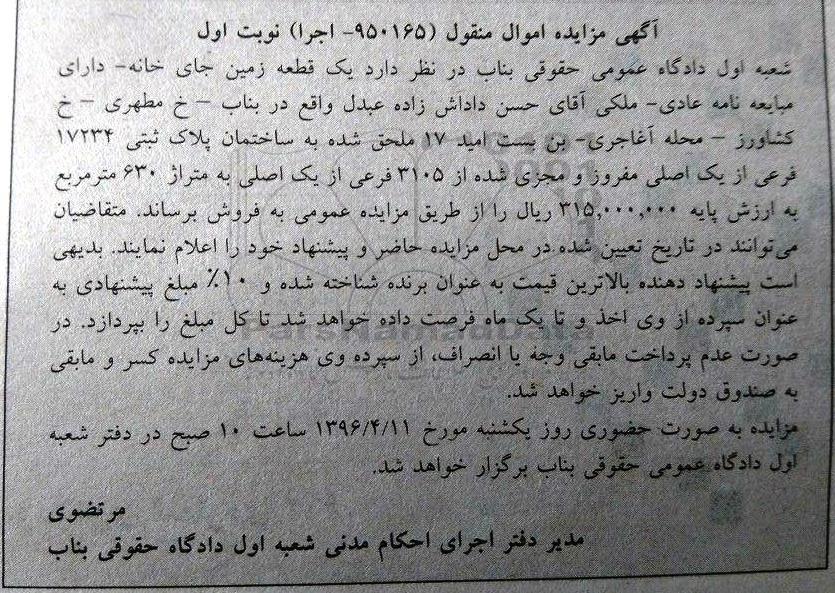 آگهی مزایده اموال منقول (۹۵۰۱۶۵- اجرا) نوبت اول
شعبه اول دادگاه عمومی حقوقی بناب در نظر دارد یک قطعه زمین جای خانه- دارای
مبایعه نامه عادی- ملکی آقای حسن داداش زاده عبدل واقع در بناب – خ مطهری – خ
کشاورز – محله آغاجری- بن بست امید ۱۷ ملحق شده به ساختمان پلاک ثبتی ۱۷۲۳۴
فرعی از یک اصلی مفروز و مجزی شده از ۳۱۰۵ فرعی از یک اصلی به متراژ ۶۳۰ مترمربع
به ارزش پایه ۳۱۵,۰۰۰,۰۰۰ ریال را از طریق مزایده عمومی به فروش برساند. متقاضیان
می‌توانند در تاریخ تعیین شده در محل مزایده حاضر و پیشنهاد خود را اعلام نمایند. بدیهی
است پیشنهاد دهنده بالاترین قیمت به عنوان برنده شناخته شده و ۱۰٪ مبلغ پیشنهادی به
عنوان سپرده از وی اخذ و تا یک ماه فرصت داده خواهد شد تا کل مبلغ را بپردازد. در
صورت عدم پرداخت مابقی وجه یا انصراف، از سپرده وی هزینه‌های مزایده کسر و مابقی
به صندوق دولت واریز خواهد شد.
مزایده به صورت حضوری روز یکشنبه مورخ ۱۳۹۶/۴/۱۱ ساعت ۱۰ صبح در دفتر شعبه
اول دادگاه عمومی حقوقی بناب برگزار خواهد شد.
مرتضوی
مدیر دفتر اجرای احکام مدنی شعبه اول دادگاه حقوقی بناب